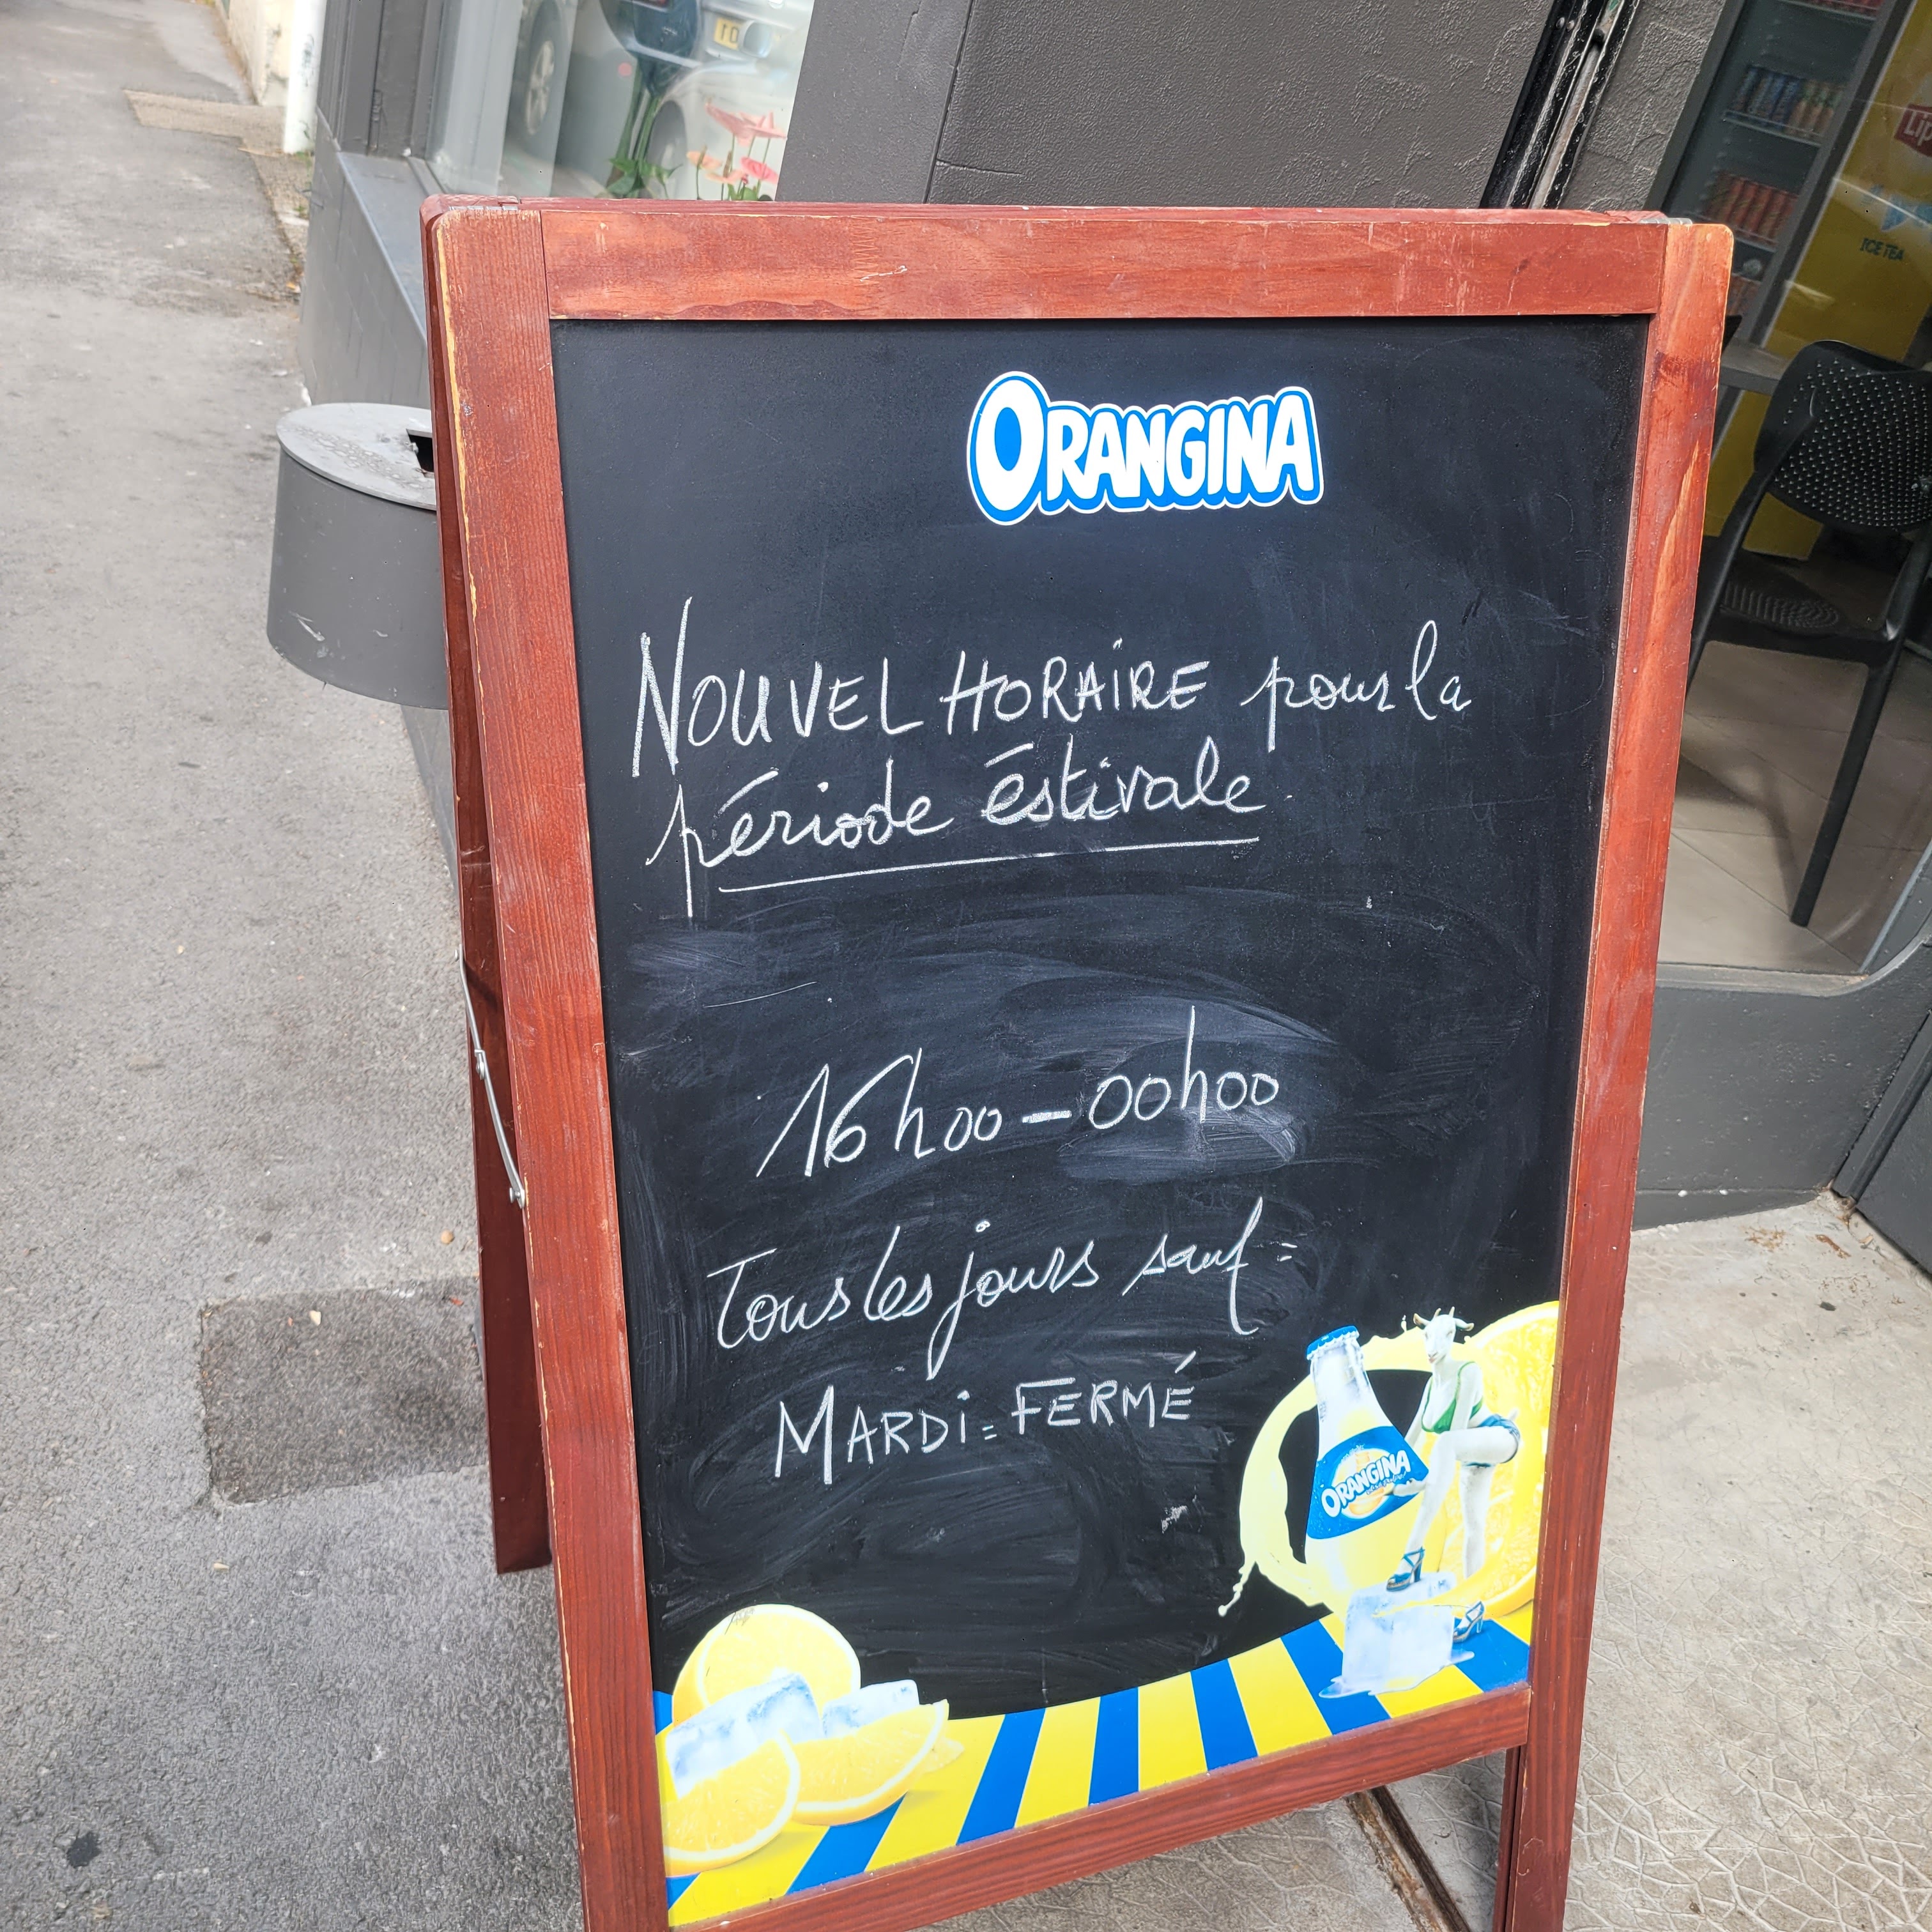 ORANGINA
NOUVEL HORAIRE pour la
période éstivale
16h00 – 00h00
Tous les jours sauf :
MARDI : FERMÉ
ORANGINA
ICE TEA